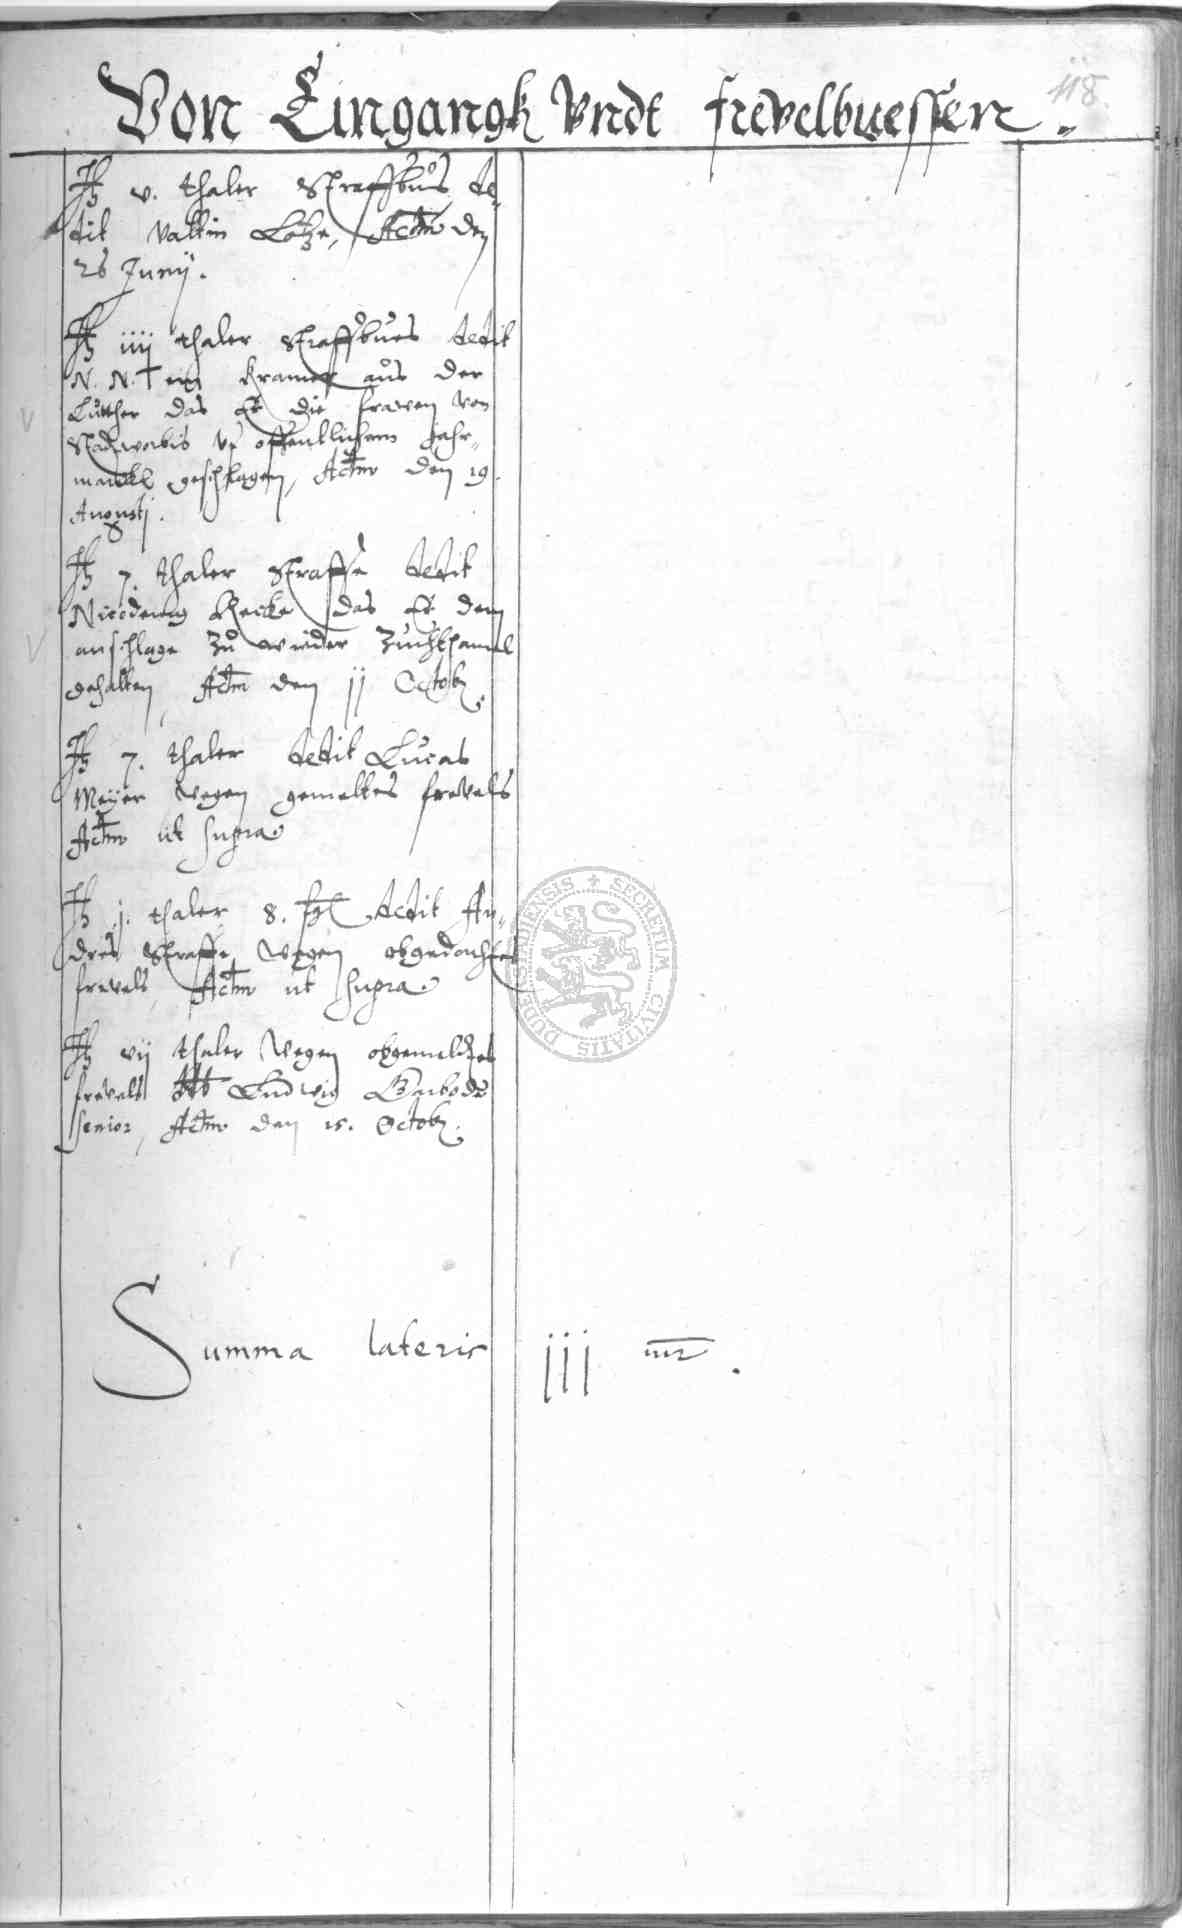 118.
Von Eingangk Vndt frevelbuessen.
It v. thaler Straffbus de-
dit Valtin Lotze, Actm den
26 Junij.
It iiij thaler Straffbues dedit
N. N. ein Kramer aus der
Lutther das Er die frawen von
Stadtworbis vf offentlichem Jahr-
marckt geschlagen, Actm den 19
Augusti.
It 7. thaler Straffe dedit
Nicodemus Hecke das Er dem
anschlage zu wider
gehalten, Actm den jj Octob.
It 7. thaler dedit Lucas
Meyer wegen gemeltes frevels
Actm ut supra
It j. thaler 8. dedit An-
dres Straffe wegen obgedachtes
frevels, Actm ut supra.
It vij thaler wegen obgemeltes
frevels Ludwig
senior, Actm den 15. Octob.
Summa lateris iij mr.
SECRETUM CIVITATIS DUDERSTADIENSIS